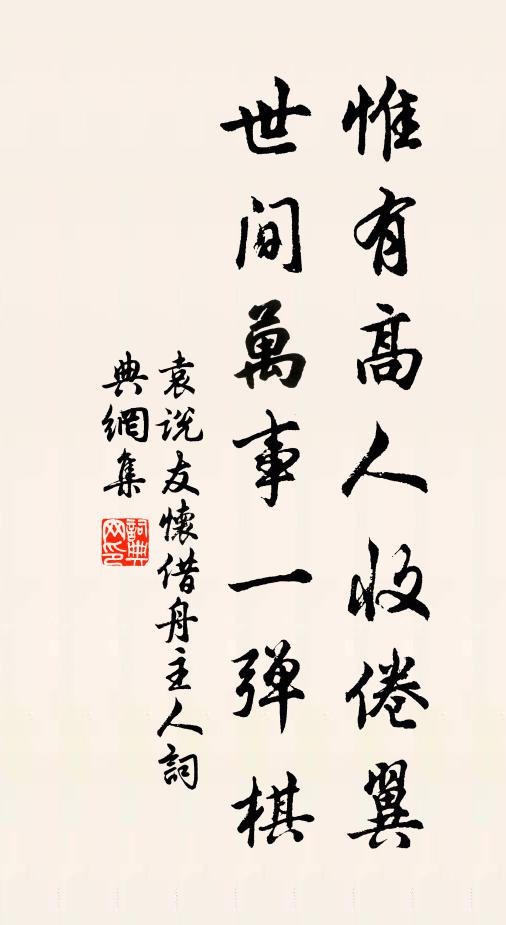 惟有高人收倦翼
世间萬事一弹棋
袁说友懷借舟主人詞
典網集
詞典網印